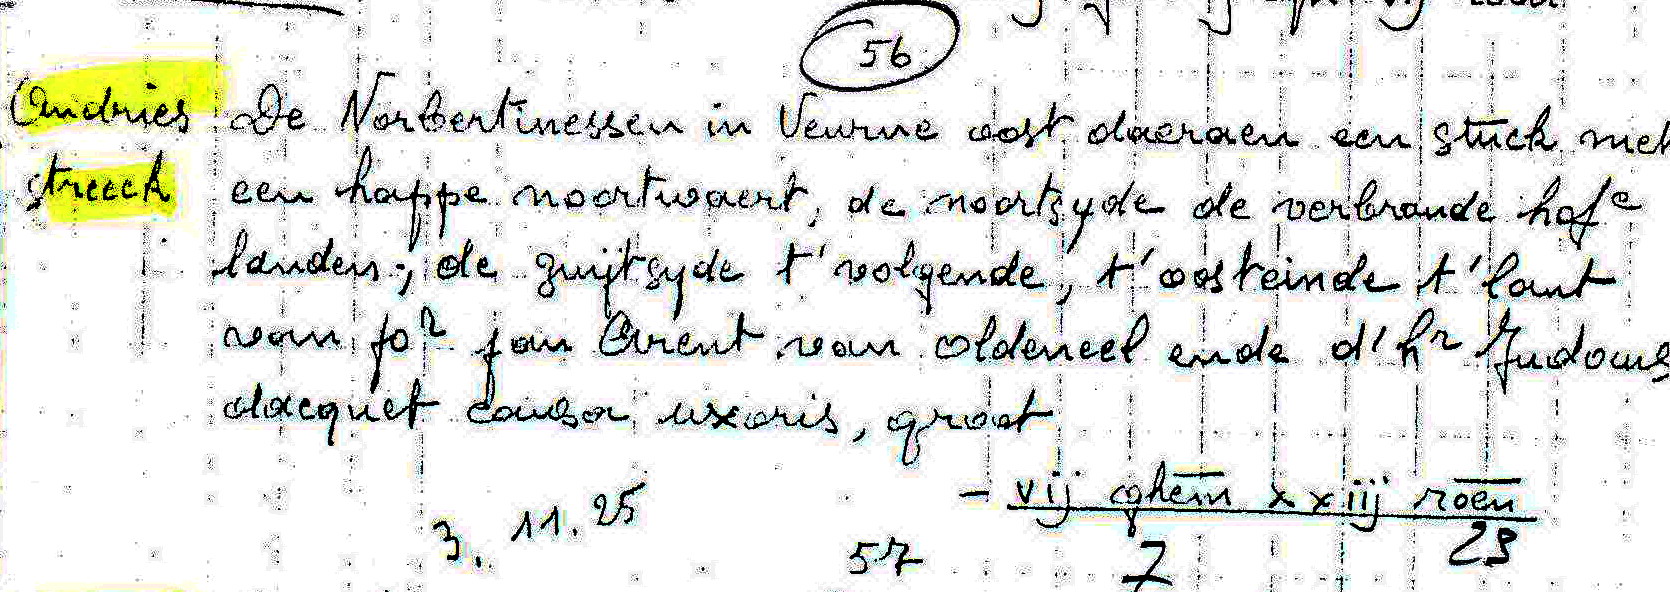 56
Andries De Norbertinessen in Veurne oost daeraen een stuck met
streeck een happe noortwaert, de noortsyde de verbrande hofe
landen; de zuijtsyde t'volgende, t'oosteinde t'lant
van jor jan Arent van Oldeneel ende d'hr Judocus
dacquet causa uxoris, groot
- vij ghem xxiij roen
3. 11. 25
57 7 23